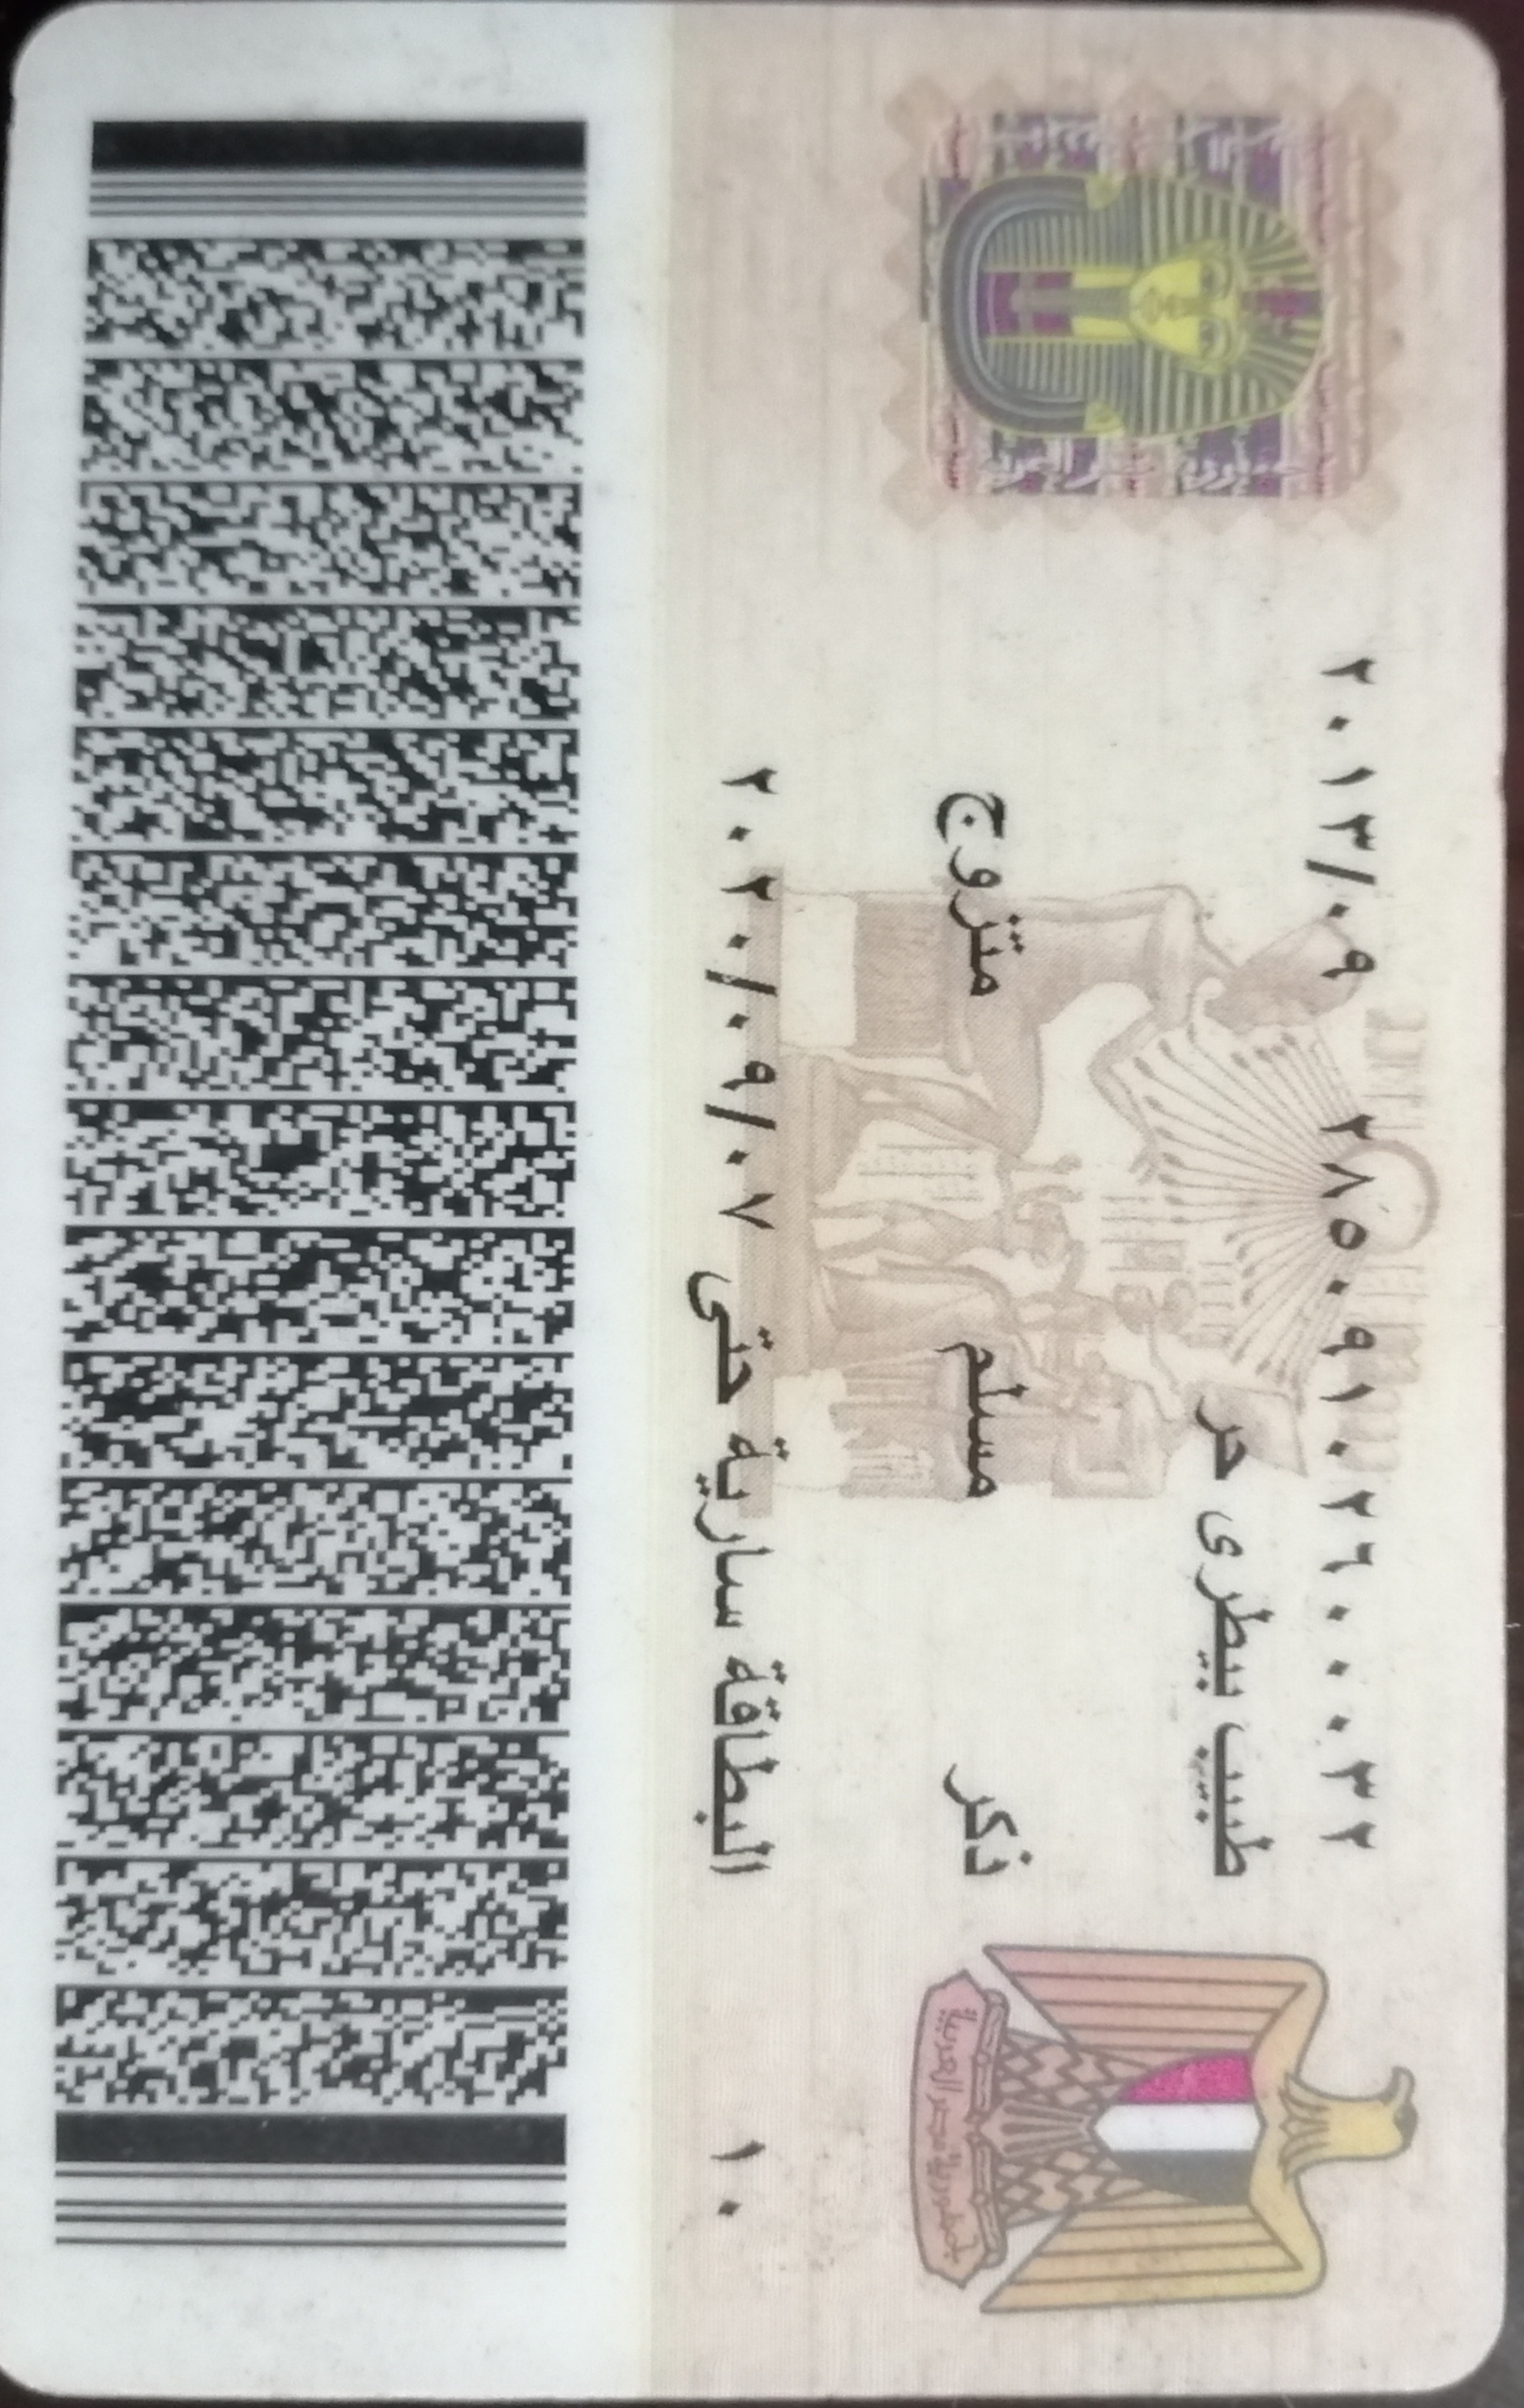 ٢٠١٣/٠٩ ٢٨٥٠٩١٠٢٦٠٠٠٣٢
طبيب بيطرى حر
ذكر مسلم متزوج
البطاقة سارية حتى ٢٠٢٠/٠٩/٠٧
١٠
جمهورية مصر العربية